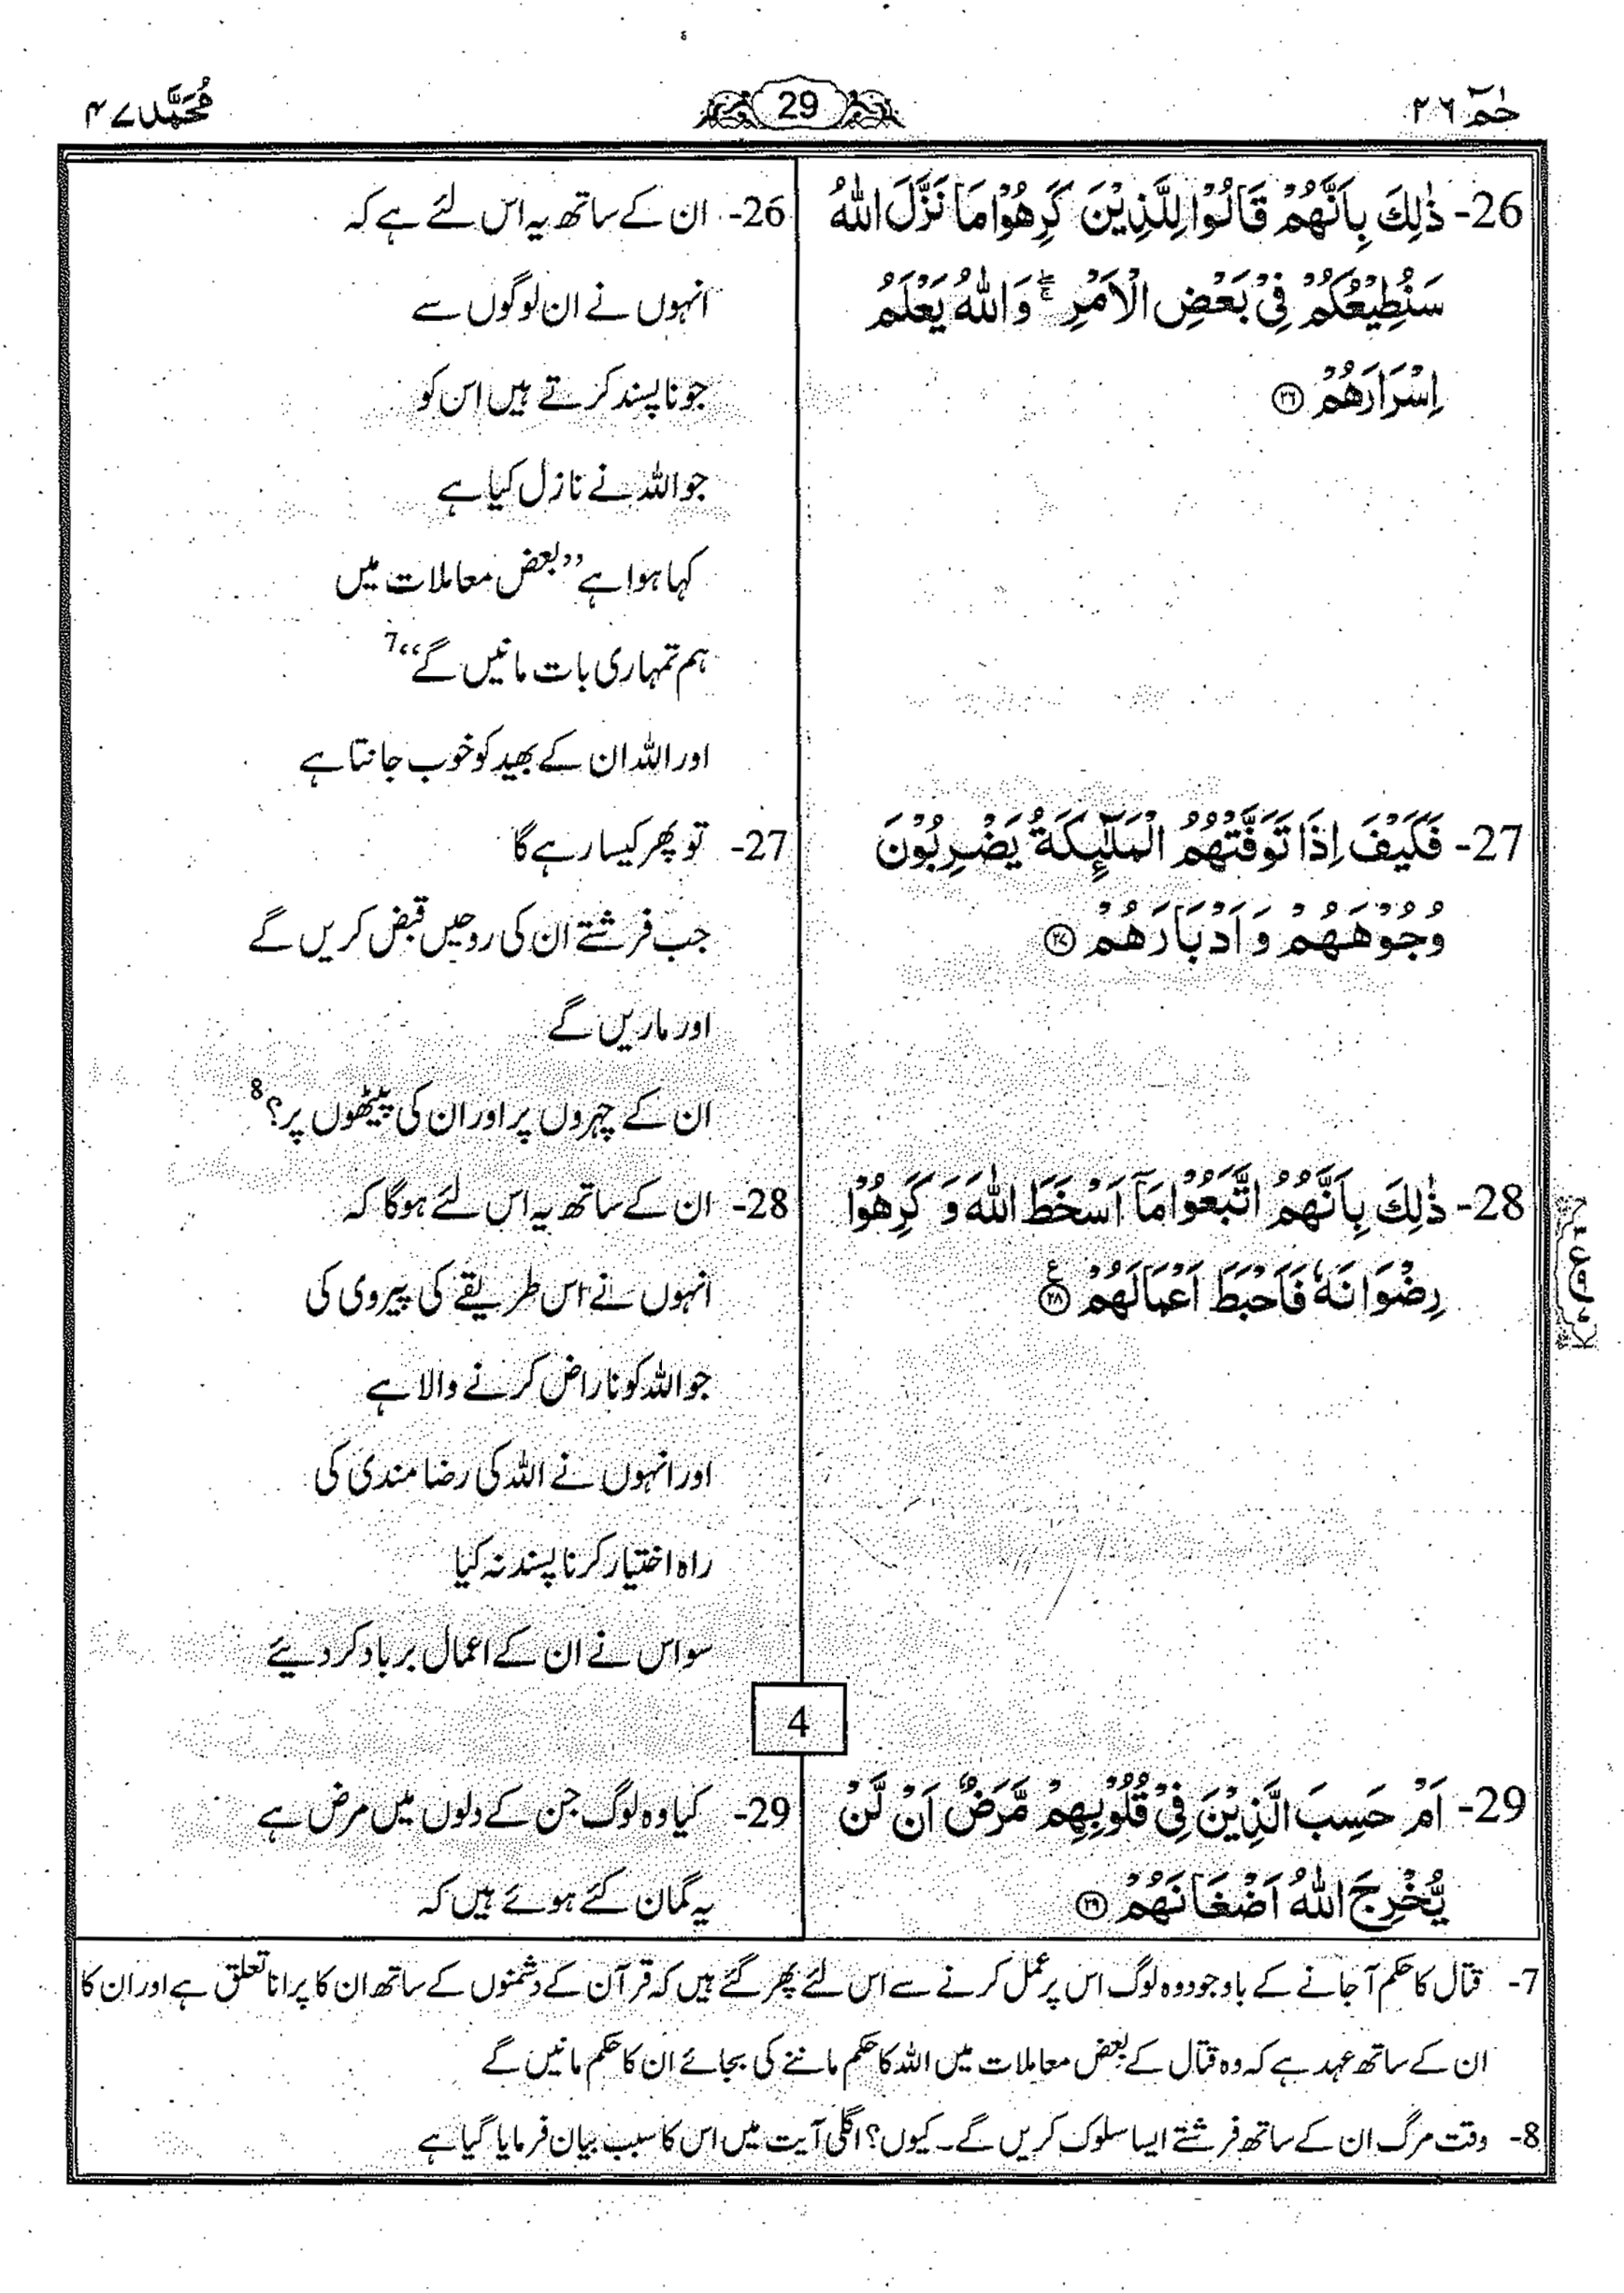 حٰمٓ ٢٦
29
مُحَمَّد ٤٧
26- ذٰلِكَ بِاَنَّهُمْ قَالُوْا لِلَّذِيْنَ كَرِهُوْا مَا نَزَّلَ اللّٰهُ
سَنُطِيْعُكُمْ فِيْ بَعْضِ الْاَمْرِ ۚۖ وَاللّٰهُ يَعْلَمُ
اِسْرَارَهُمْ ۝٢٦
27- فَكَيْفَ اِذَا تَوَفَّتْهُمُ الْمَلٰٓئِكَةُ يَضْرِبُوْنَ
وُجُوْهَهُمْ وَاَدْبَارَهُمْ ۝٢٧
28- ذٰلِكَ بِاَنَّهُمُ اتَّبَعُوْا مَآ اَسْخَطَ اللّٰهَ وَ كَرِهُوْا
رِضْوَانَهٗ فَاَحْبَطَ اَعْمَالَهُمْ ۝٢٨ ع
29- اَمْ حَسِبَ الَّذِيْنَ فِيْ قُلُوْبِهِمْ مَّرَضٌ اَنْ لَّنْ
يُّخْرِجَ اللّٰهُ اَضْغَانَهُمْ ۝٢٩
26- ان کے ساتھ یہ اس لئے ہے کہ
انہوں نے ان لوگوں سے
جو ناپسند کرتے ہیں اس کو
جو اللہ نے نازل کیا ہے
کہا ہوا ہے ”بعض معاملات میں
ہم تمہاری بات مانیں گے“7
اور اللہ ان کے بھید کو خوب جانتا ہے
27- تو پھر کیسا رہے گا
جب فرشتے ان کی روحیں قبض کریں گے
اور ماریں گے
ان کے چہروں پر اور ان کی پیٹھوں پر؟8
28- ان کے ساتھ یہ اس لئے ہوگا کہ
انہوں نے اس طریقے کی پیروی کی
جو اللہ کو ناراض کرنے والا ہے
اور انہوں نے اللہ کی رضا مندی کی
راہ اختیار کرنا پسند نہ کیا
سو اس نے ان کے اعمال برباد کر دیئے
4
29- کیا وہ لوگ جن کے دلوں میں مرض ہے
یہ گمان کئے ہوئے ہیں کہ
7- قتال کا حکم آ جانے کے باوجود وہ لوگ اس پر عمل کرنے سے اس لئے پھر گئے ہیں کہ قرآن کے دشمنوں کے ساتھ ان کا پرانا تعلق ہے اور ان کا
ان کے ساتھ عہد ہے کہ وہ قتال کے بعض معاملات میں اللہ کا حکم ماننے کی بجائے ان کا حکم مانیں گے
8- وقت مرگ ان کے ساتھ فرشتے ایسا سلوک کریں گے۔ کیوں؟ اگلی آیت میں اس کا سبب بیان فرمایا گیا ہے